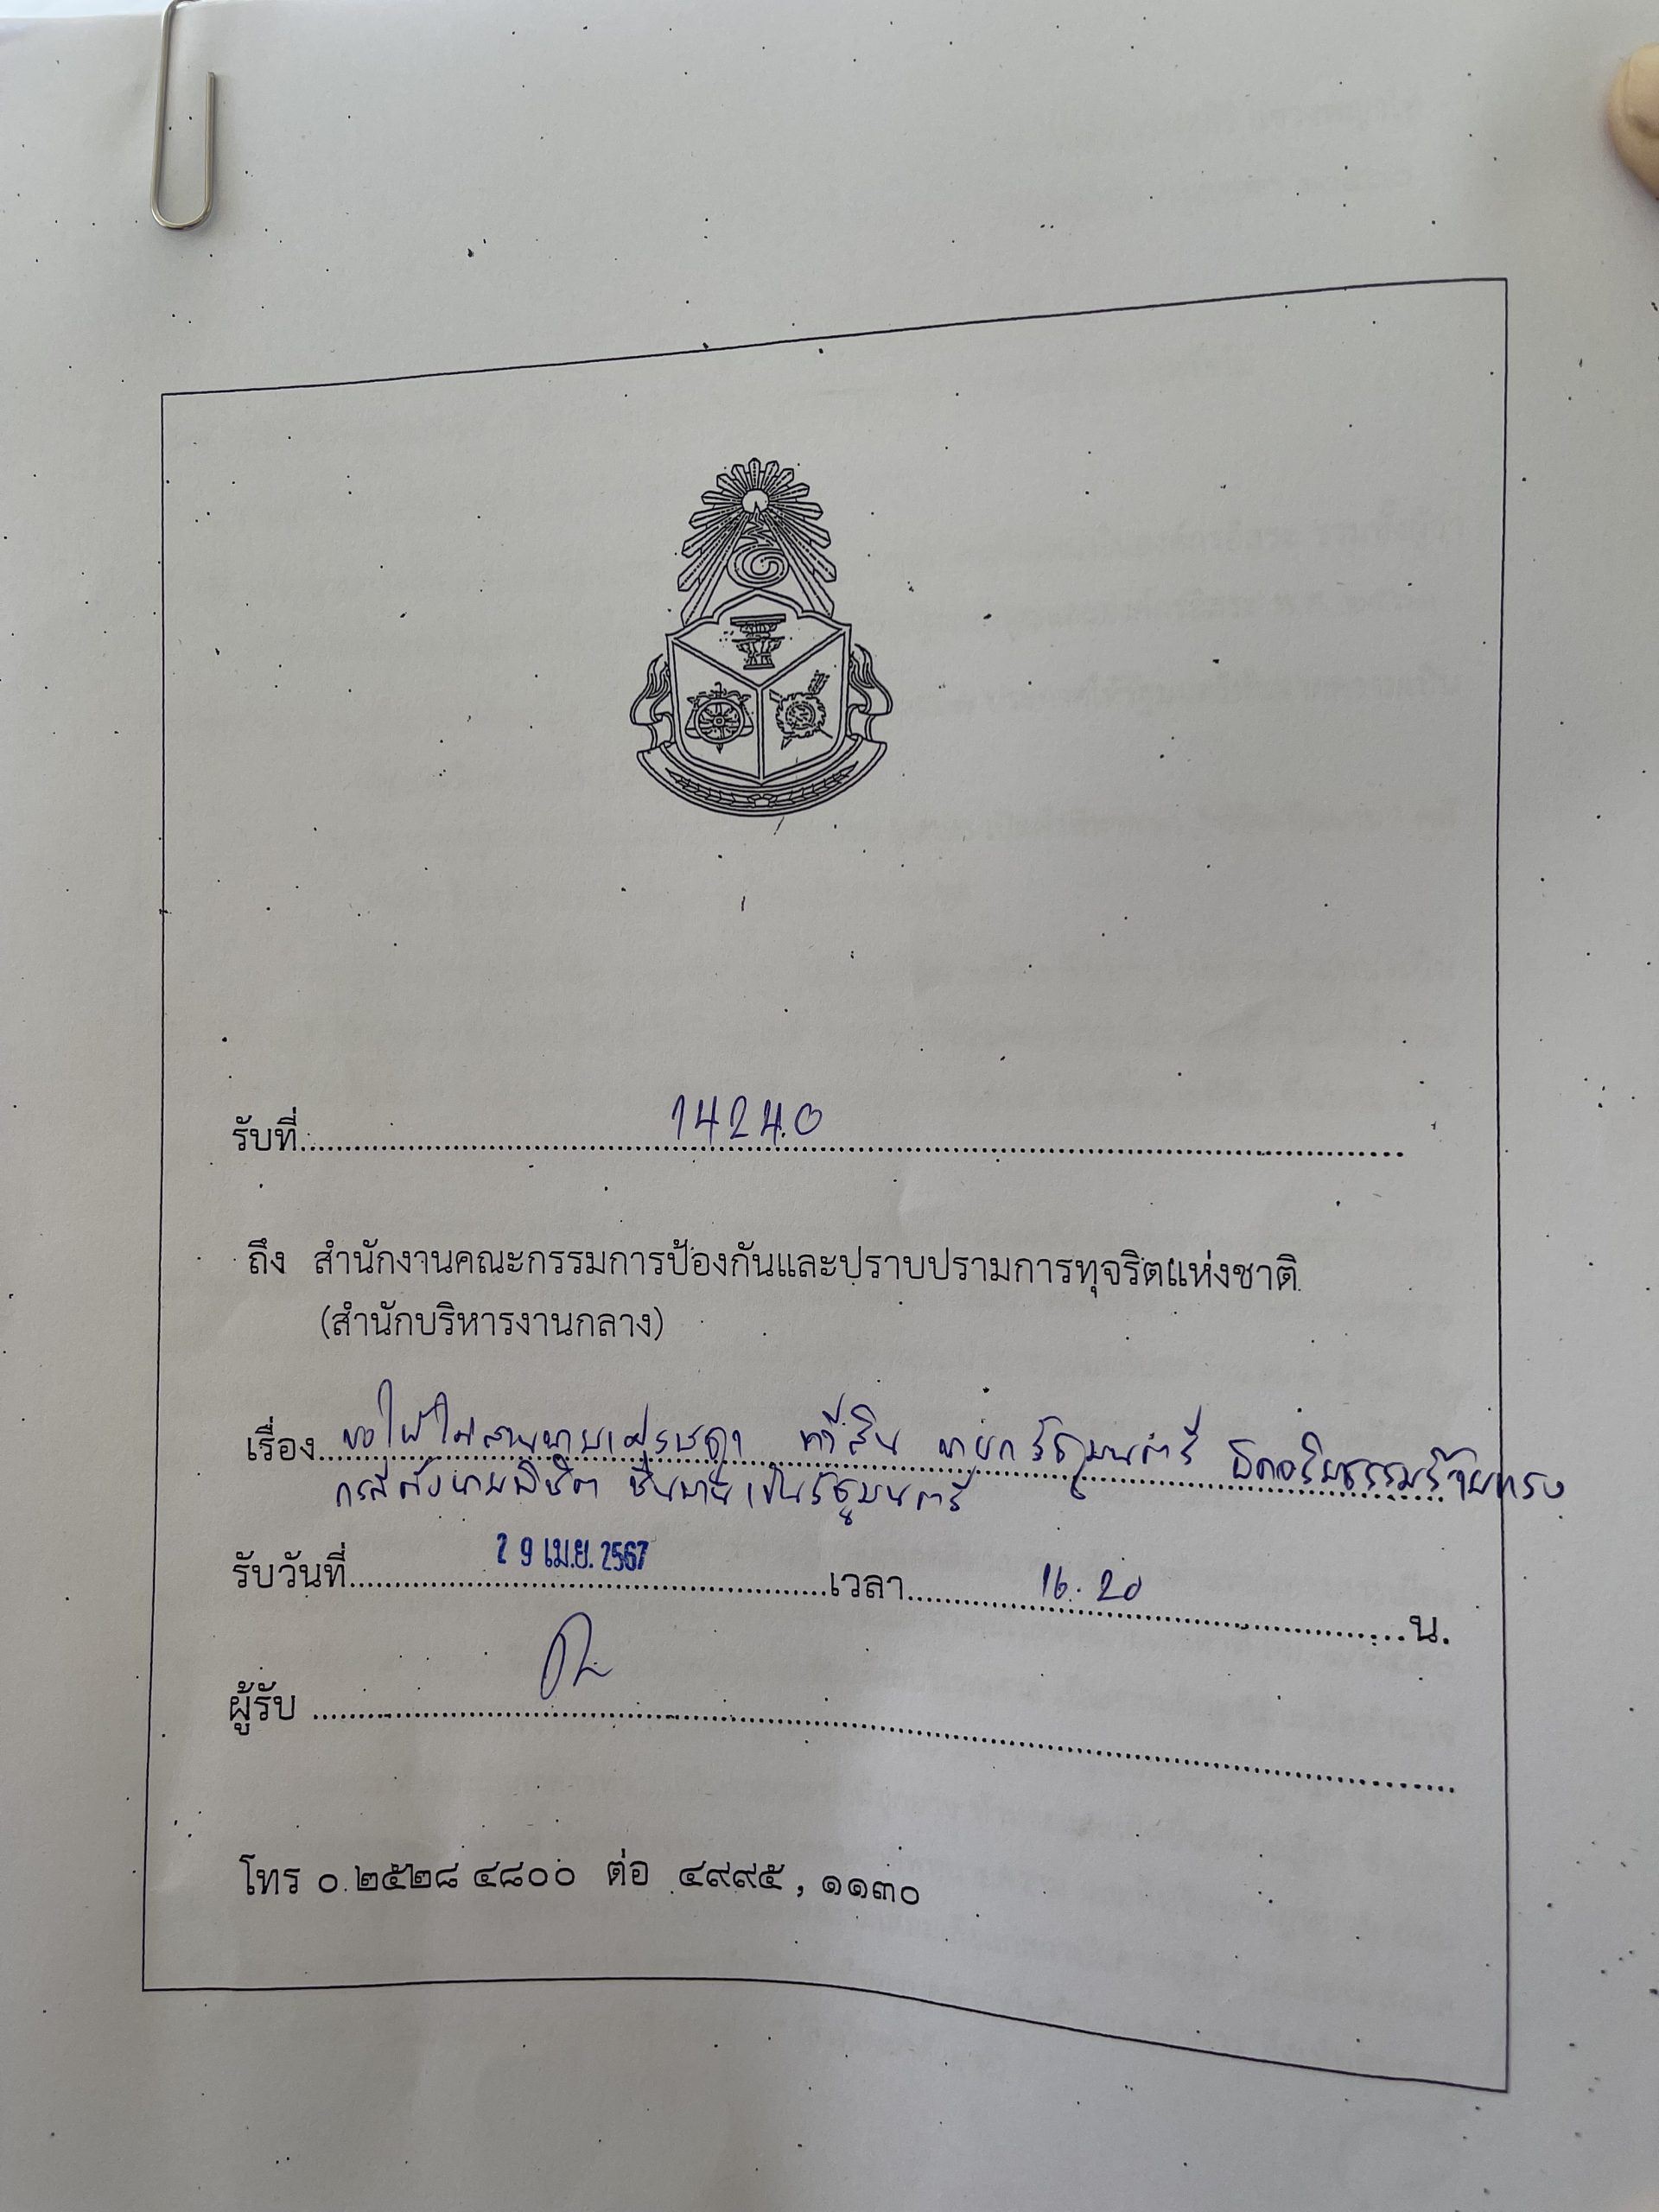 รับที่ 14240
ถึง สำนักงานคณะกรรมการป้องกันและปราบปรามการทุจริตแห่งชาติ
(สำนักบริหารงานกลาง)
เรื่อง ขอให้ไต่สวนนายเศรษฐา ทวีสิน นายกรัฐมนตรี ผิดจริยธรรมร้ายแรง
กรณีตั้งนายพิชิต ชื่นบานเป็นรัฐมนตรี
รับวันที่ 29 เม.ย. 2567 เวลา 16.20 น.
ผู้รับ
โทร ๐ ๒๕๒๘ ๔๘๐๐ ต่อ ๔๙๙๕, ๑๑๓๐